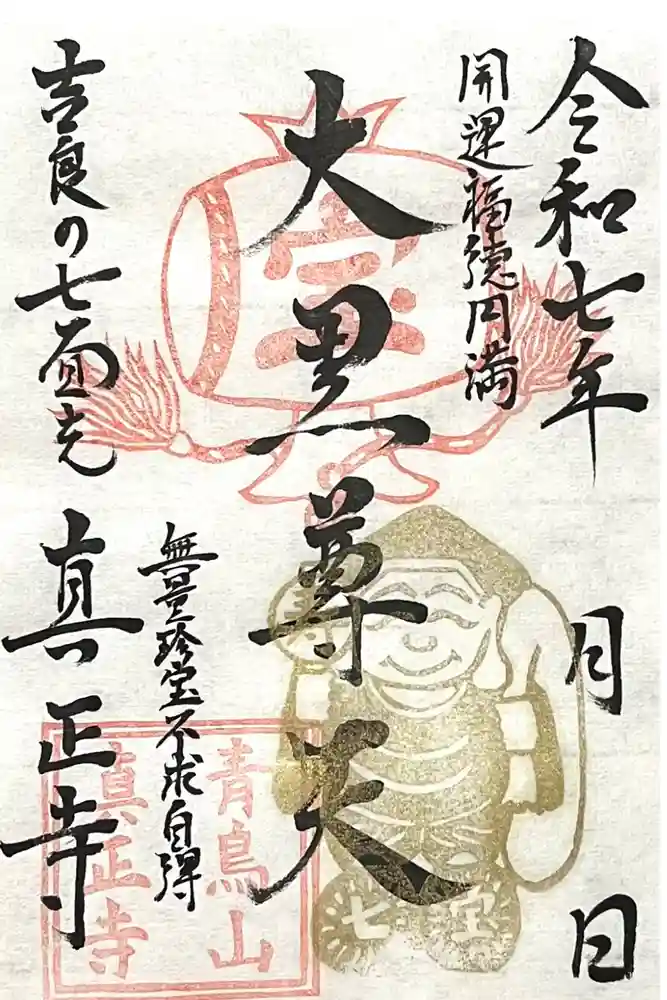 令和七年 月 日
開運福徳円満
大黒尊天
宝
無量珍宝不求自得
吉良の七面さん
真正寺
青鳥山
眞正寺
寿
七
宝